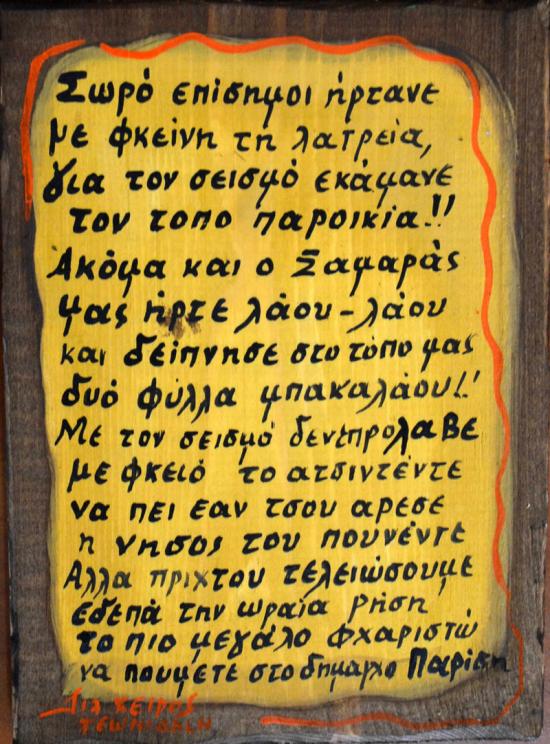 Σωρό επίσημοι ήρτανε
με φκείνη τη λατρεία,
για τον σεισμό εκάμανε
τον τοπο παροικία!!
Ακόμα και ο Σαμαράς
μας ήρτε λάου-λάου
και δείπνησε στο τόπο μας
δυό φύλλα μπακαλάου!!
Με τον σεισμό δενέπρολαβε
με φκειό το ατσιντέντε
να πει εαν τσου αρεσε
η νησος του πουνέντε
Αλλα πριχτου τελειώσουμε
εδεπά την ωραία ρήση
το πιο μεγάλο φχαριστώ
να πουμετε στο δημαρχο Παρίση
Δια χειρος